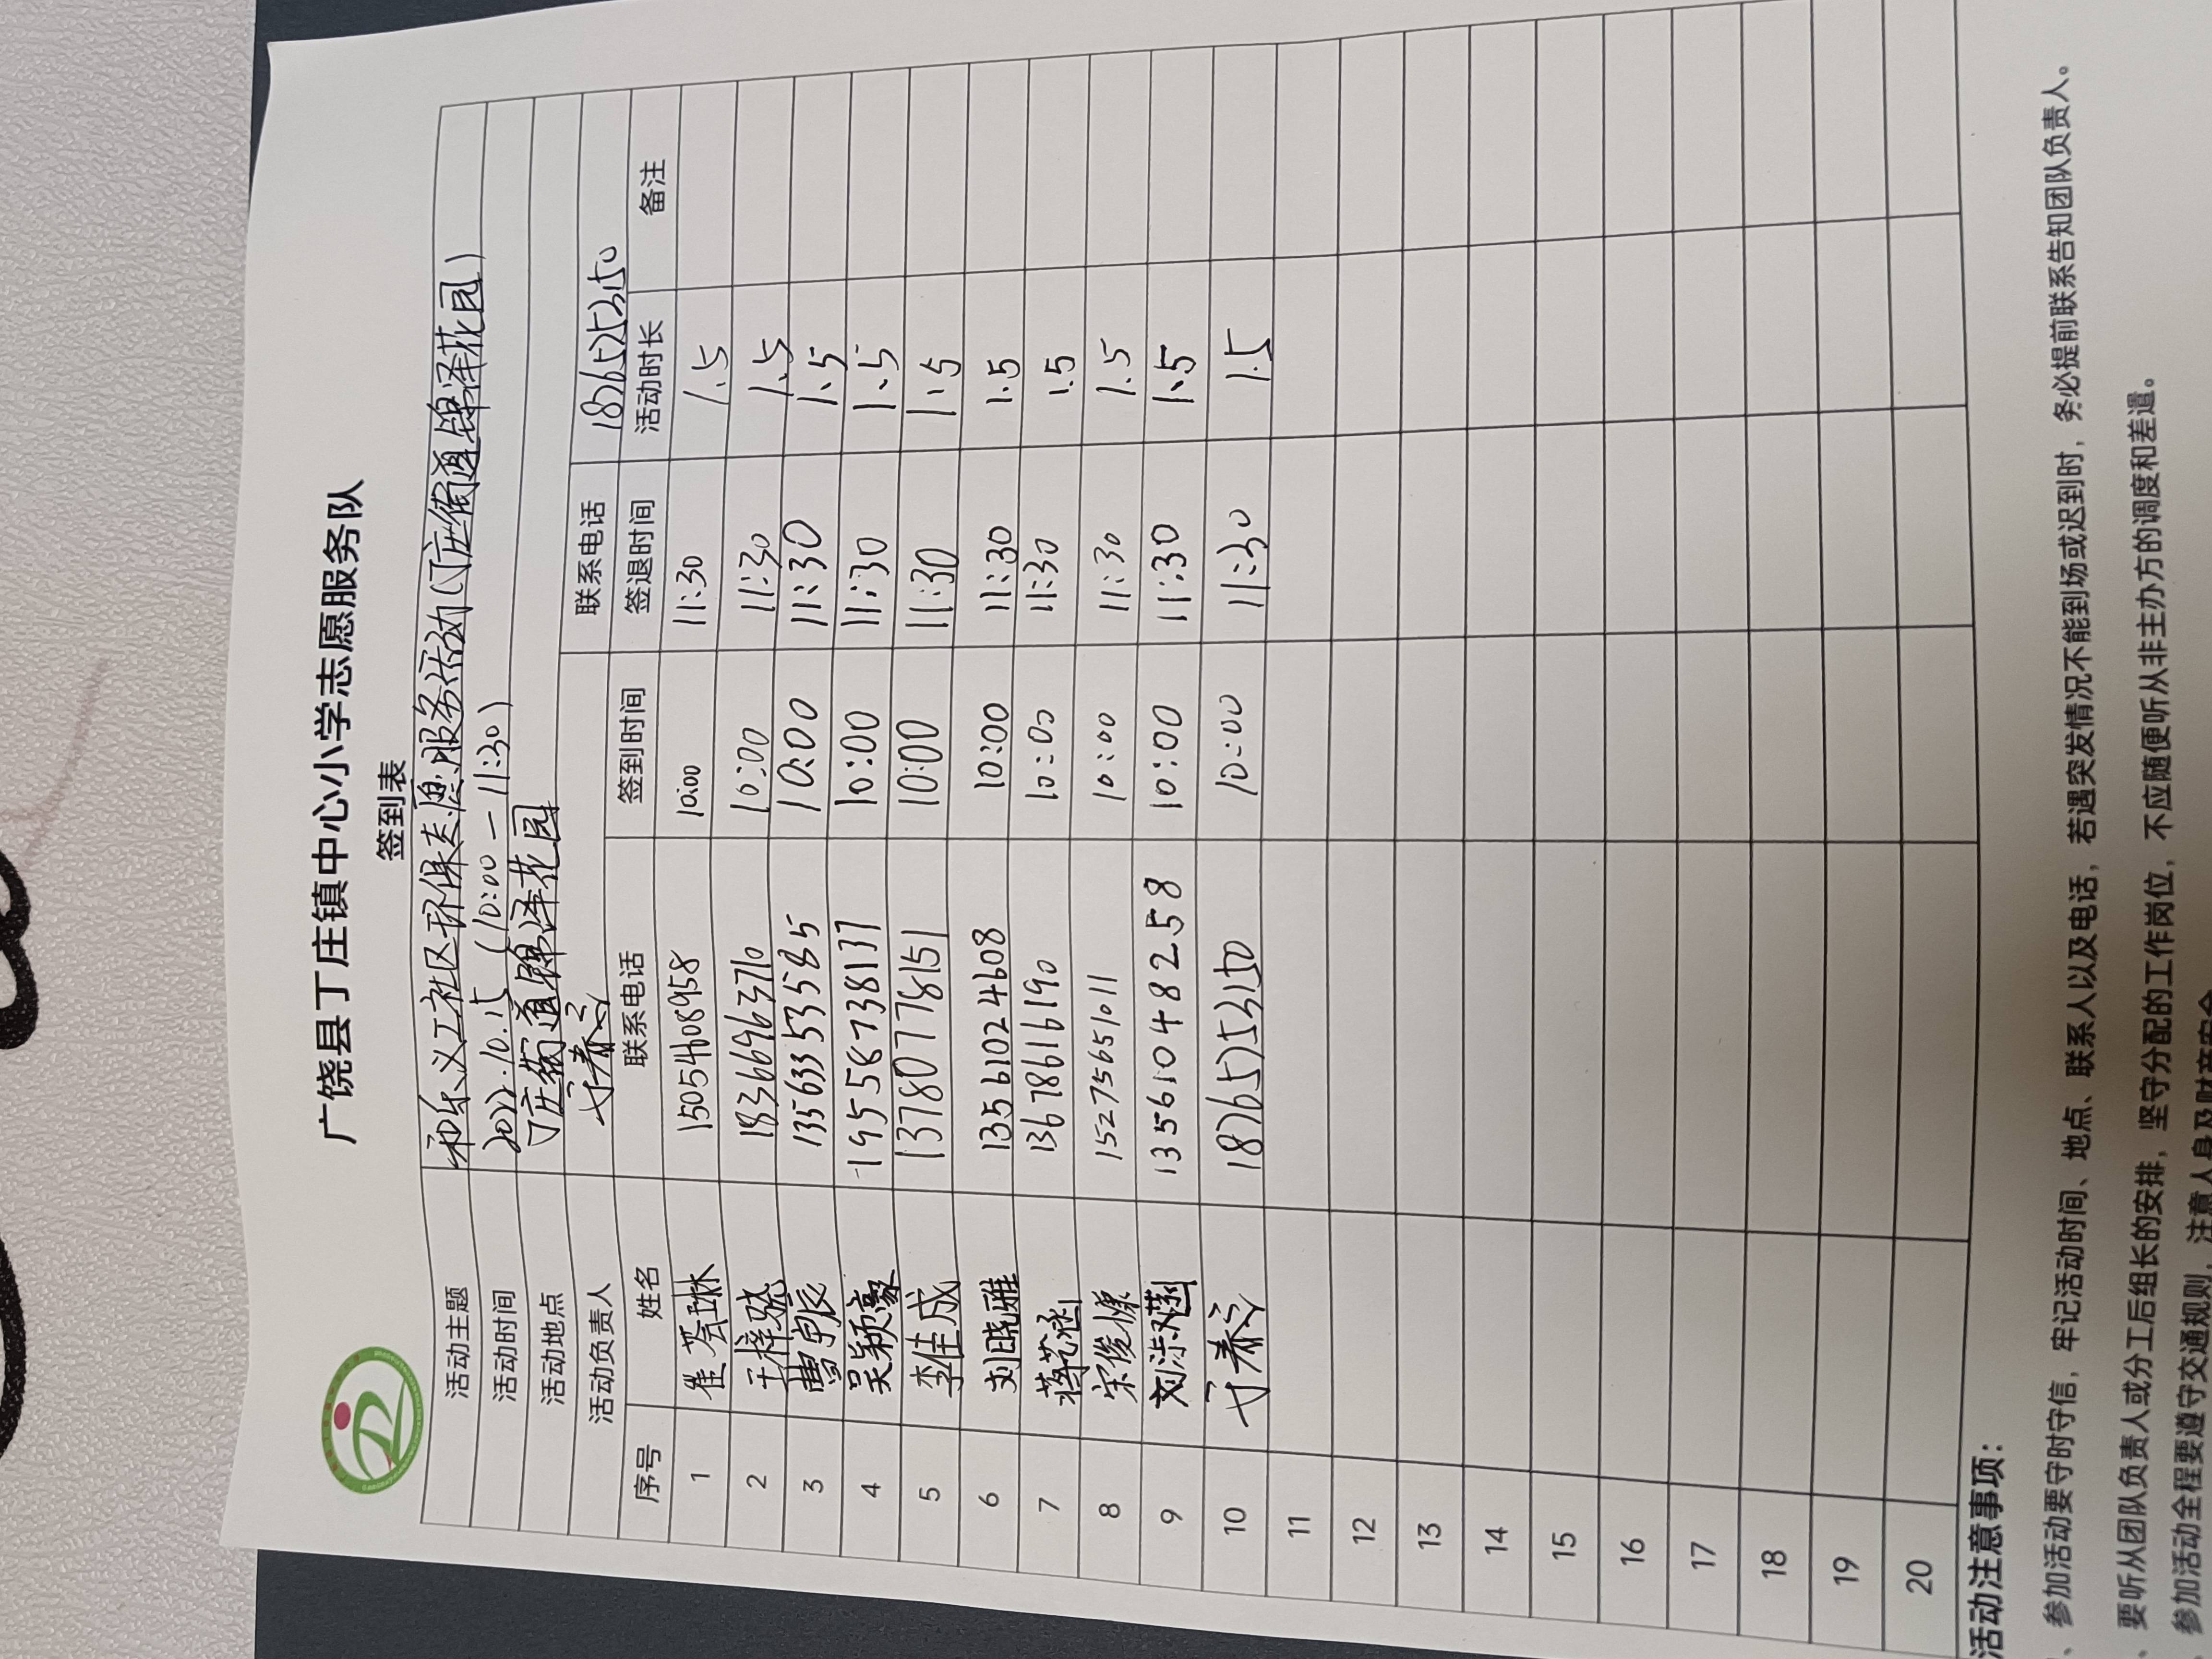 广饶县丁庄镇中心小学志愿服务队
签到表
活动主题 和乐义工社区环保志愿服务活动(丁庄街道锦泽花园)
活动时间 2022.10.15 (10:00-11:30)
活动地点 丁庄街道锦泽花园
活动负责人 联系电话 18765253150
序号 姓名 联系电话 签到时间 签退时间 活动时长 备注
1 崔荟琳 15054608958 10:00 11:30 1.5
2 王梓骁 18366963710 10:00 11:30 1.5
3 曹宇辰 13563353585 10:00 11:30 1.5
4 吴颖豪 19558738137 10:00 11:30 1.5
5 李佳成 13780778151 10:00 11:30 1.5
6 刘晓雅 13561024608 10:00 11:30 1.5
7 蒋艺涵 13678616190 10:00 11:30 1.5
8 宋俊慷 15275651011 10:00 11:30 1.5
9 刘 13561048258 10:00 11:30 1.5
10 18765253150 10:00 11:30 1.5
11
12
13
14
15
16
17
18
19
20
活动注意事项：
、参加活动要守时守信，牢记活动时间、地点、联系人以及电话，若遇突发情况不能到场或迟到时，务必提前联系告知团队负责人。
、要听从团队负责人或分工后组长的安排，坚守分配的工作岗位，不应随便听从非主办方的调度和差遣。
参加活动全程要遵守交通规则，注意人身及财产安全